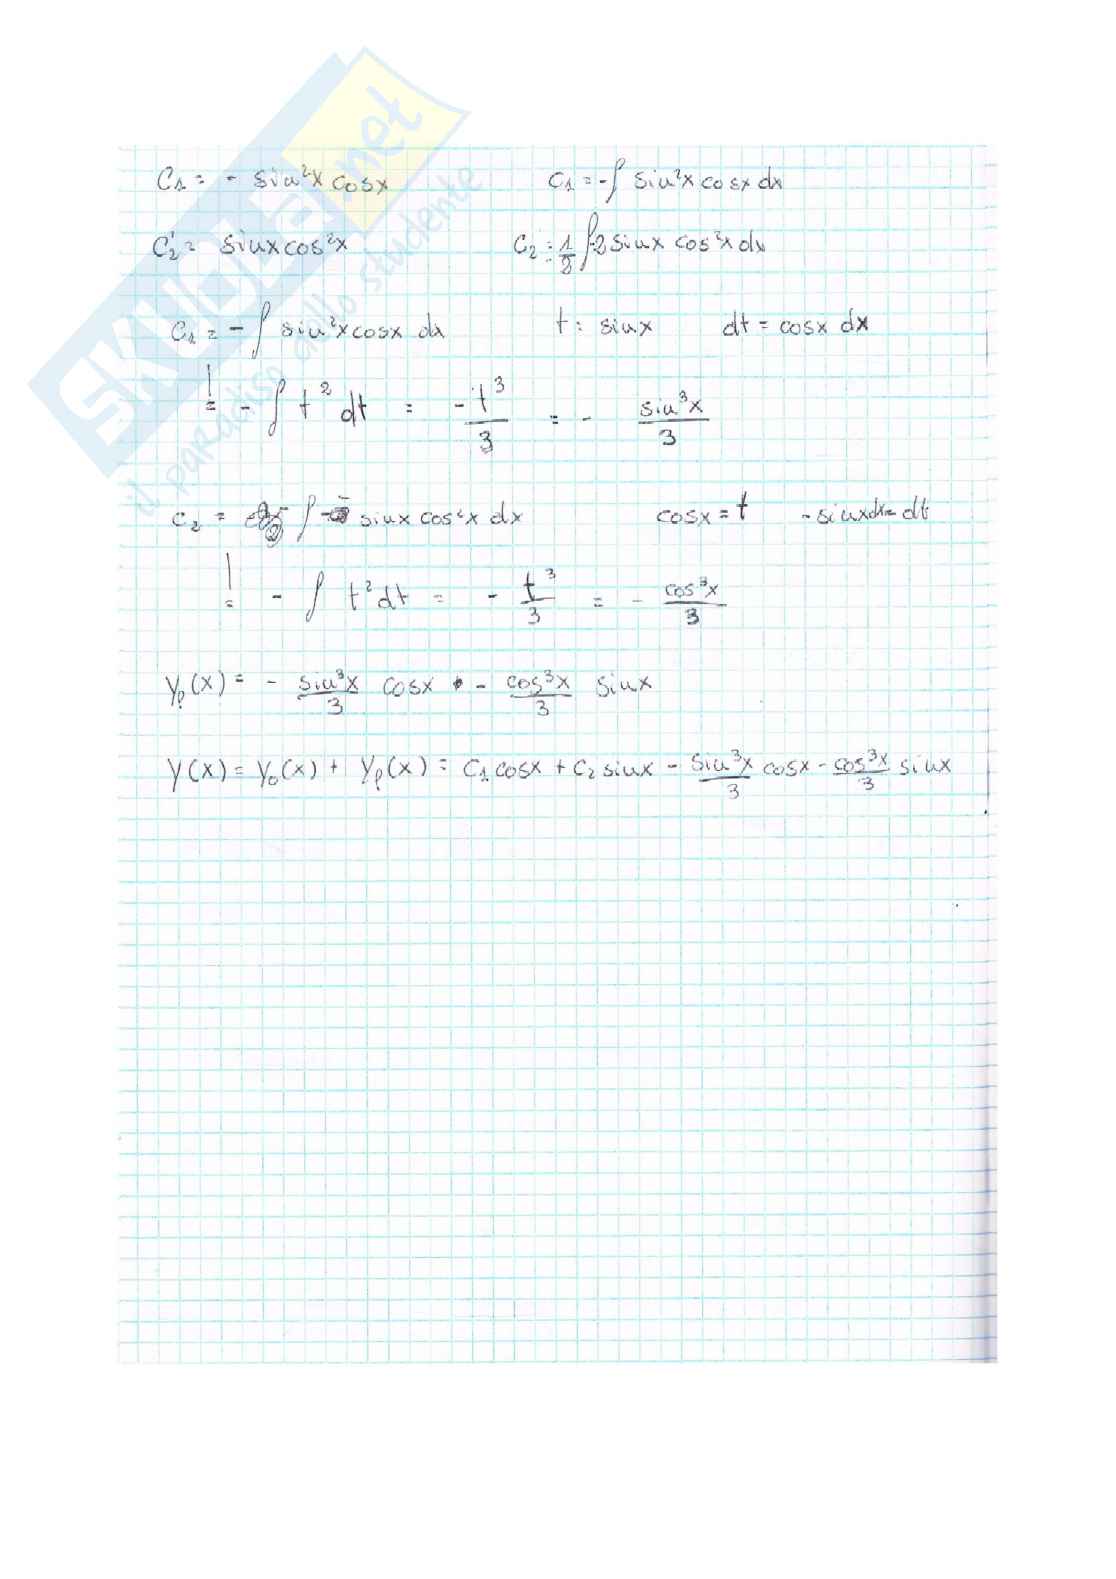 SKUOLA.net
il paradiso dello studente
C₁ = - sin²x cosx    C₁ = -∫ sin²x cosx dx
C₂' = sinx cos²x    C₂ = 1/2 ∫ 2 sinx cos²x dx
C₁ = -∫ sin²x cosx dx    t = sinx    dt = cosx dx
= - ∫ t² dt = -t³/3 = - sin³x/3
C₂ = ∫ sinx cos²x dx    cosx = t    - sinxdx = dt
= - ∫ t² dt = - t³/3 = - cos³x/3
Yp(x) = - sin³x/3 cosx - cos³x/3 sinx
Y(x) = Y₀(x) + Yp(x) = C₁ cosx + C₂ sinx - sin³x/3 cosx - cos³x/3 sinx